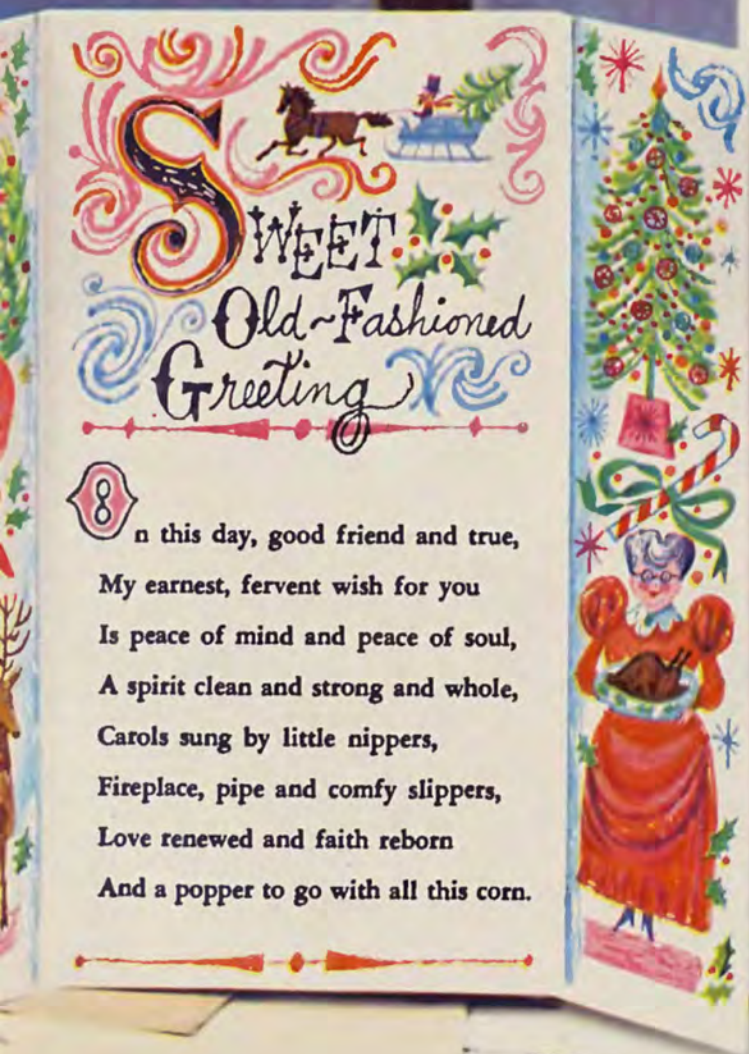 SWEET
Old-Fashioned
Greeting
On this day, good friend and true,
My earnest, fervent wish for you
Is peace of mind and peace of soul,
A spirit clean and strong and whole,
Carols sung by little nippers,
Fireplace, pipe and comfy slippers,
Love renewed and faith reborn
And a popper to go with all this corn.